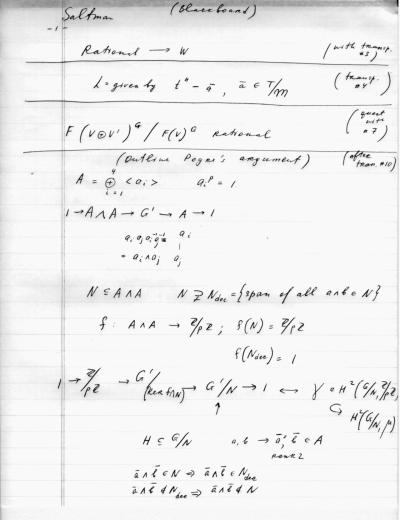 Saltman (blackboard)
- 1 -
Rational → W (with transp. #3)
L = given by tⁿ - ā, ā ∈ T/m (transp. #4)
F(V⊕V')^G / F(V)^G rational (quest with #7)
(Outline Bogomolov's argument) (after tran. #10)
A = ⊕_{i=1}^4 <a_i> a_i^p = 1
1 → A∧A → G' → A → 1
a_i a_j a_i^{-1} a_j^{-1} a_i
= a_i ∧ a_j a_j
N ⊆ A∧A N ⊋ N_dec = {span of all a∧b ∈ N}
f: A∧A → Z/pZ; f(N) = Z/pZ
f(N_dec) = 1
1 → Z/pZ → G'/(Ker f∩N) → G'/N → 1 ↔ γ ∈ H²(G/N, Z/pZ)
↑ ↪ H²(G/N, μ)
H ⊆ G/N a, b → ā, b̄ ∈ A
rank 2
ā∧b̄ ∈ N ⇒ ā∧b̄ ∈ N_dec
ā∧b̄ ∉ N_dec ⇒ ā∧b̄ ∉ N